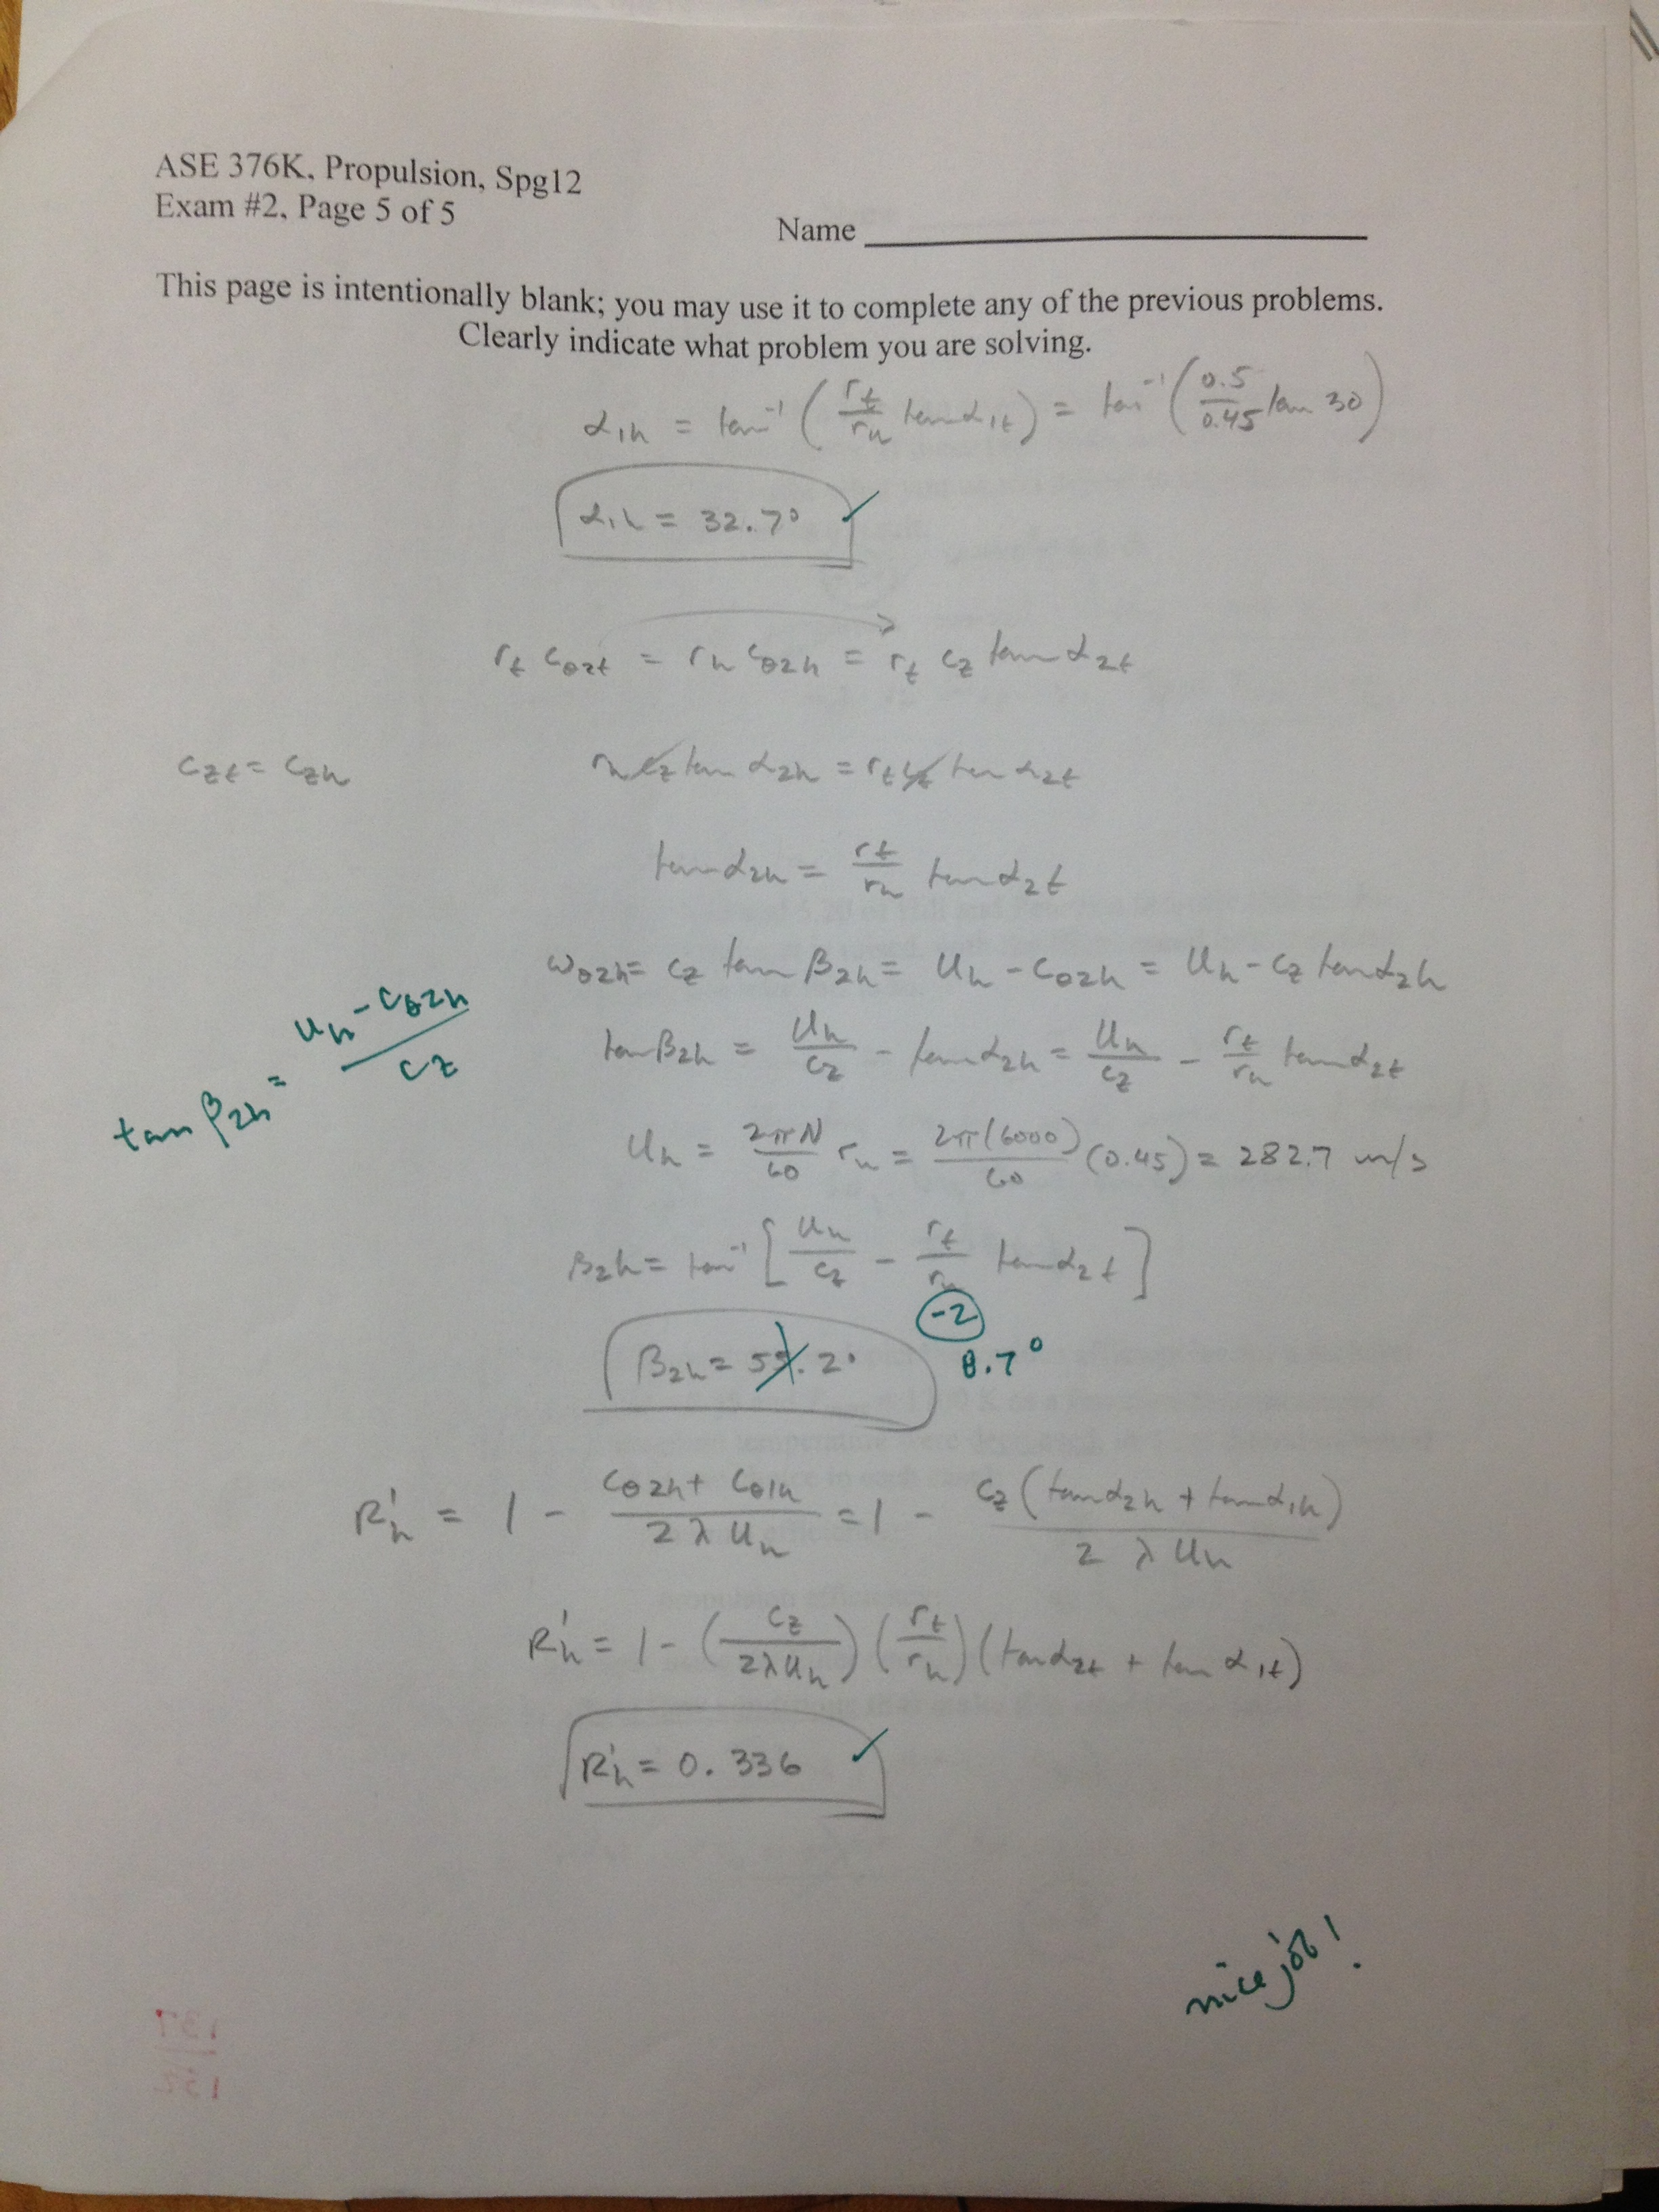 ASE 376K, Propulsion, Spg12
Exam #2, Page 5 of 5
Name
This page is intentionally blank; you may use it to complete any of the previous problems.
Clearly indicate what problem you are solving.
α1h = tan⁻¹ ( rt/rh tanα1t ) = tan⁻¹ ( 0.5/0.45 tan 30 )
α1h = 32.7° ✓
rt cθ2t = rh cθ2h = rt cz tan α2t
czt = czh
rh cz tan α2h = rt cz tan α2t
tanα2h = rt/rh tanα2t
wθ2h = cz tan β2h = Uh - cθ2h = Uh - cz tanα2h
tan β2h = (Uh - cθ2h)/cz
tanβ2h = Uh/cz - tanα2h = Uh/cz - rt/rh tanα2t
Uh = 2πN/60 rh = 2π(6000)/60 (0.45) = 282.7 m/s
β2h = tan⁻¹ [ Uh/cz - rt/rh tanα2t ]
-2
β2h = 55.2°
8.7°
R'h = 1 - (cθ2h + cθ1h)/(2λUh) = 1 - cz(tanα2h + tanα1h)/(2λUh)
R'h = 1 - (cz/(2λUh)) (rt/rh) (tanα2t + tan α1t)
R'h = 0.336 ✓
nice job!